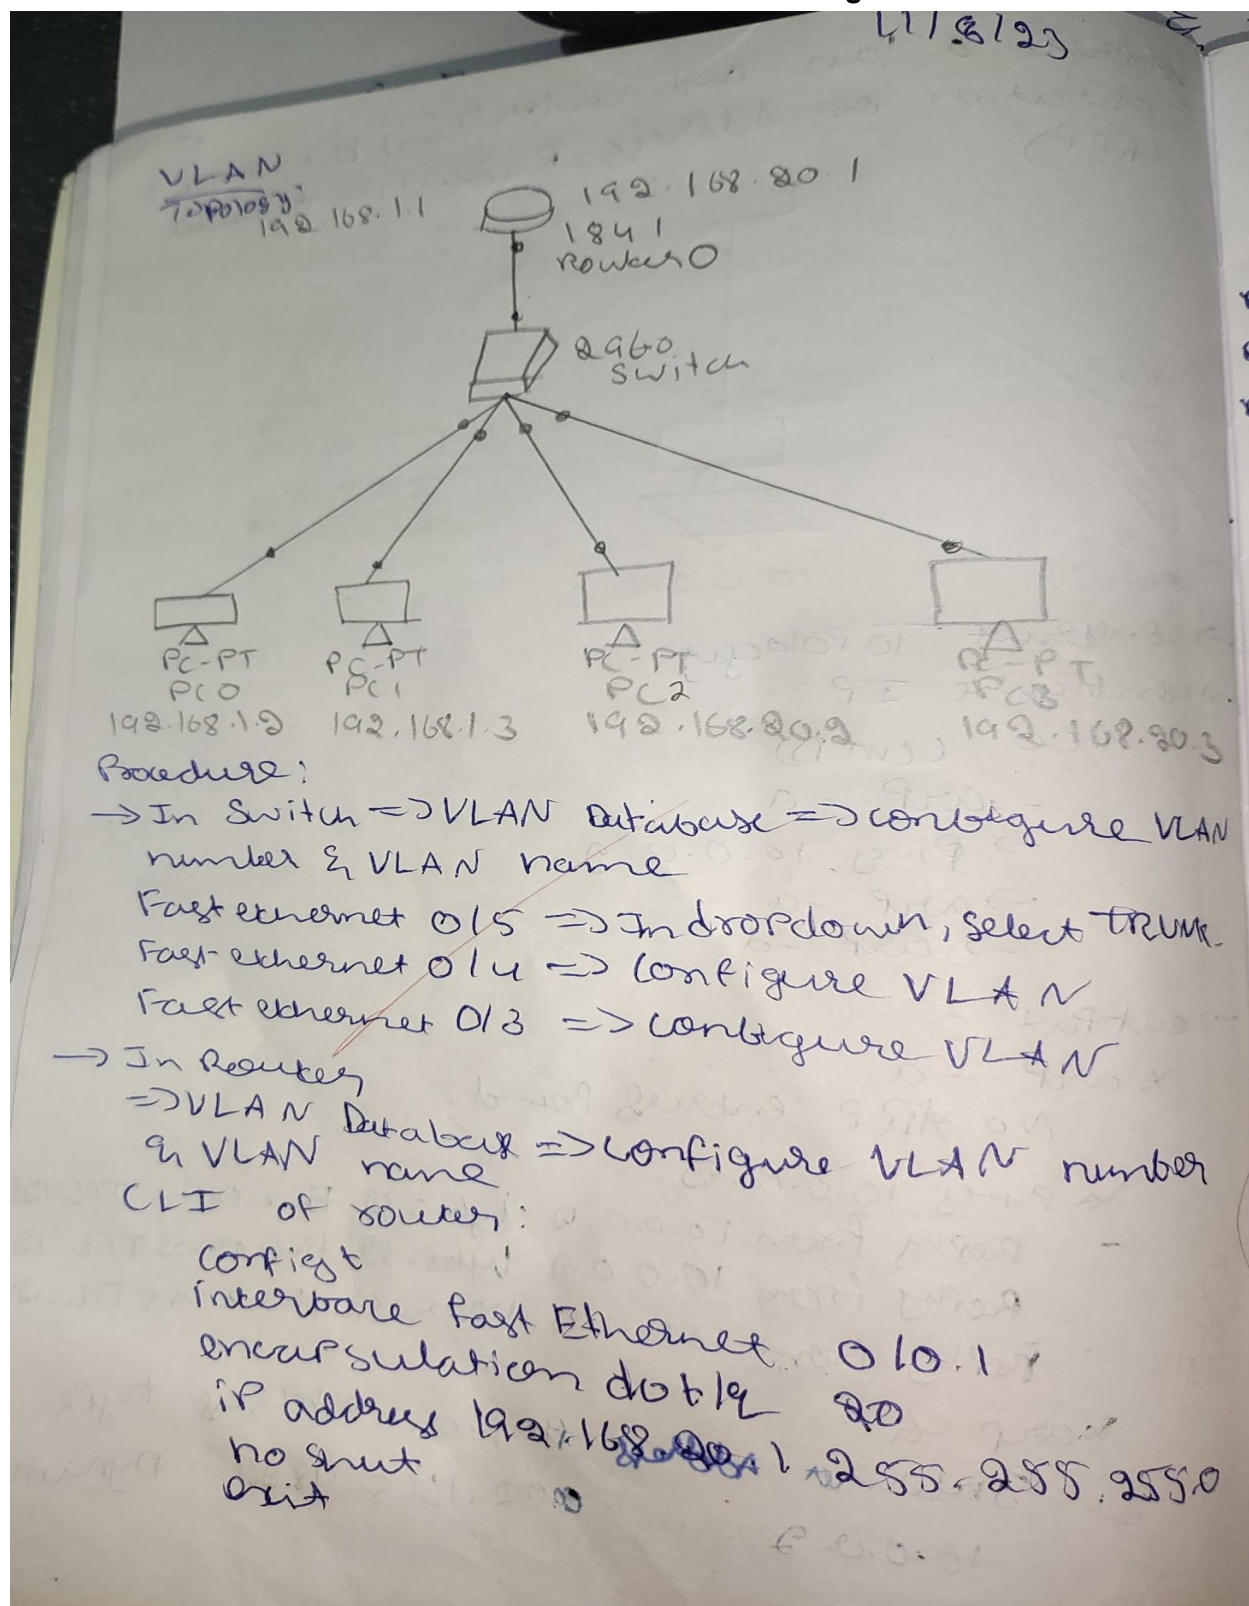 11/8/23
VLAN
Topology:
192.168.1.1
192.168.20.1
1841
Router 0
2960
Switch
PC-PT PC-PT PC-PT PC-PT
PC0 PC1 PC2 PC3
192.168.1.2 192.168.1.3 192.168.20.2 192.168.20.3
Procedure:
→ In Switch => VLAN Database => configure VLAN
number & VLAN name
Fast ethernet 0/5 => In dropdown, select TRUNK.
Fast ethernet 0/4 => Configure VLAN
Fast ethernet 0/3 => configure VLAN
→ In Router
=> VLAN Database => configure VLAN number
& VLAN name
CLI of router:
config t
interface Fast Ethernet 0/0.1
encapsulation dot1q 20
ip address 192.168.20.1 255.255.255.0
no shut
exit